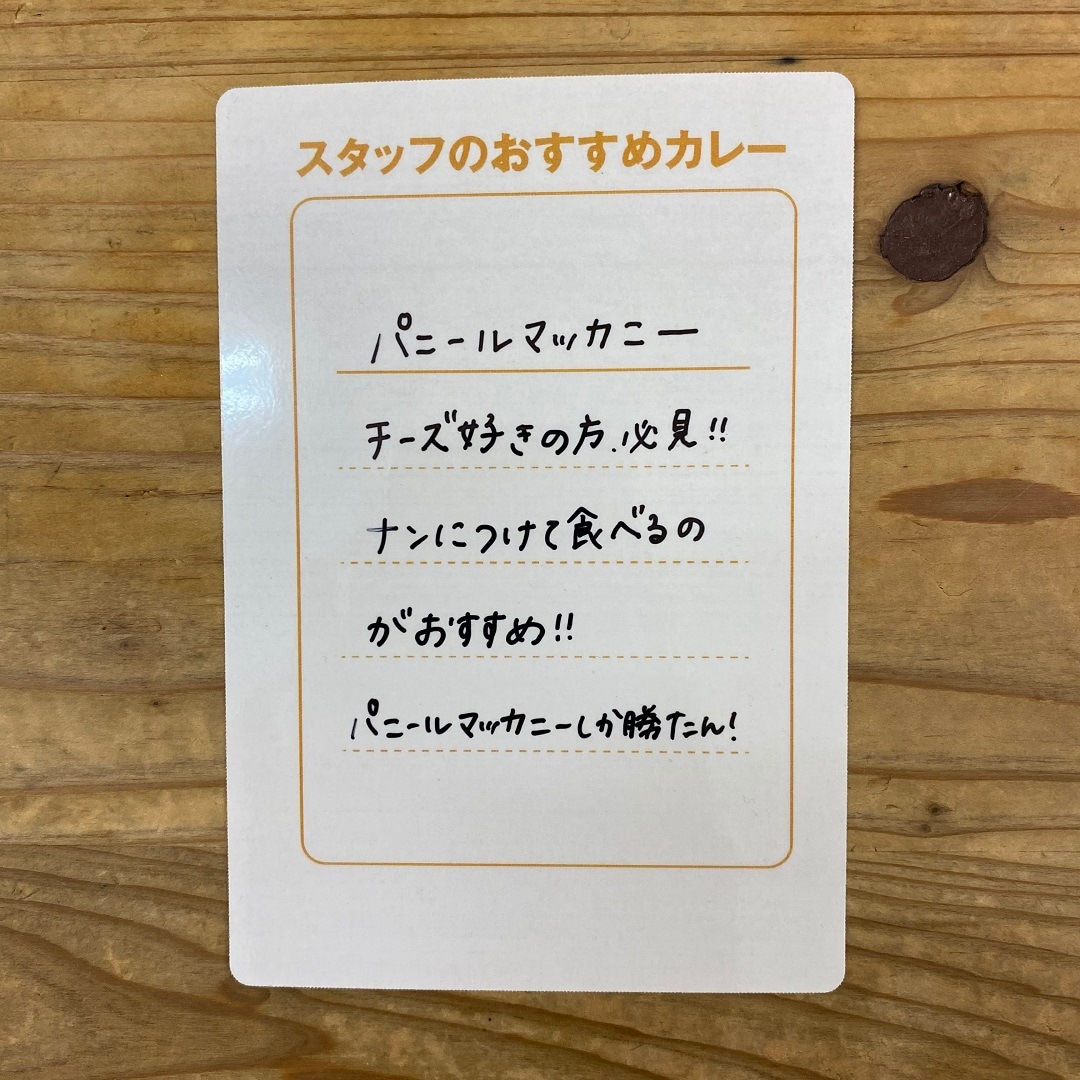 スタッフのおすすめカレー
パニールマッカニー
チーズ好きの方、必見!!
ナンにつけて食べるの
がおすすめ!!
パニールマッカニーしか勝たん!